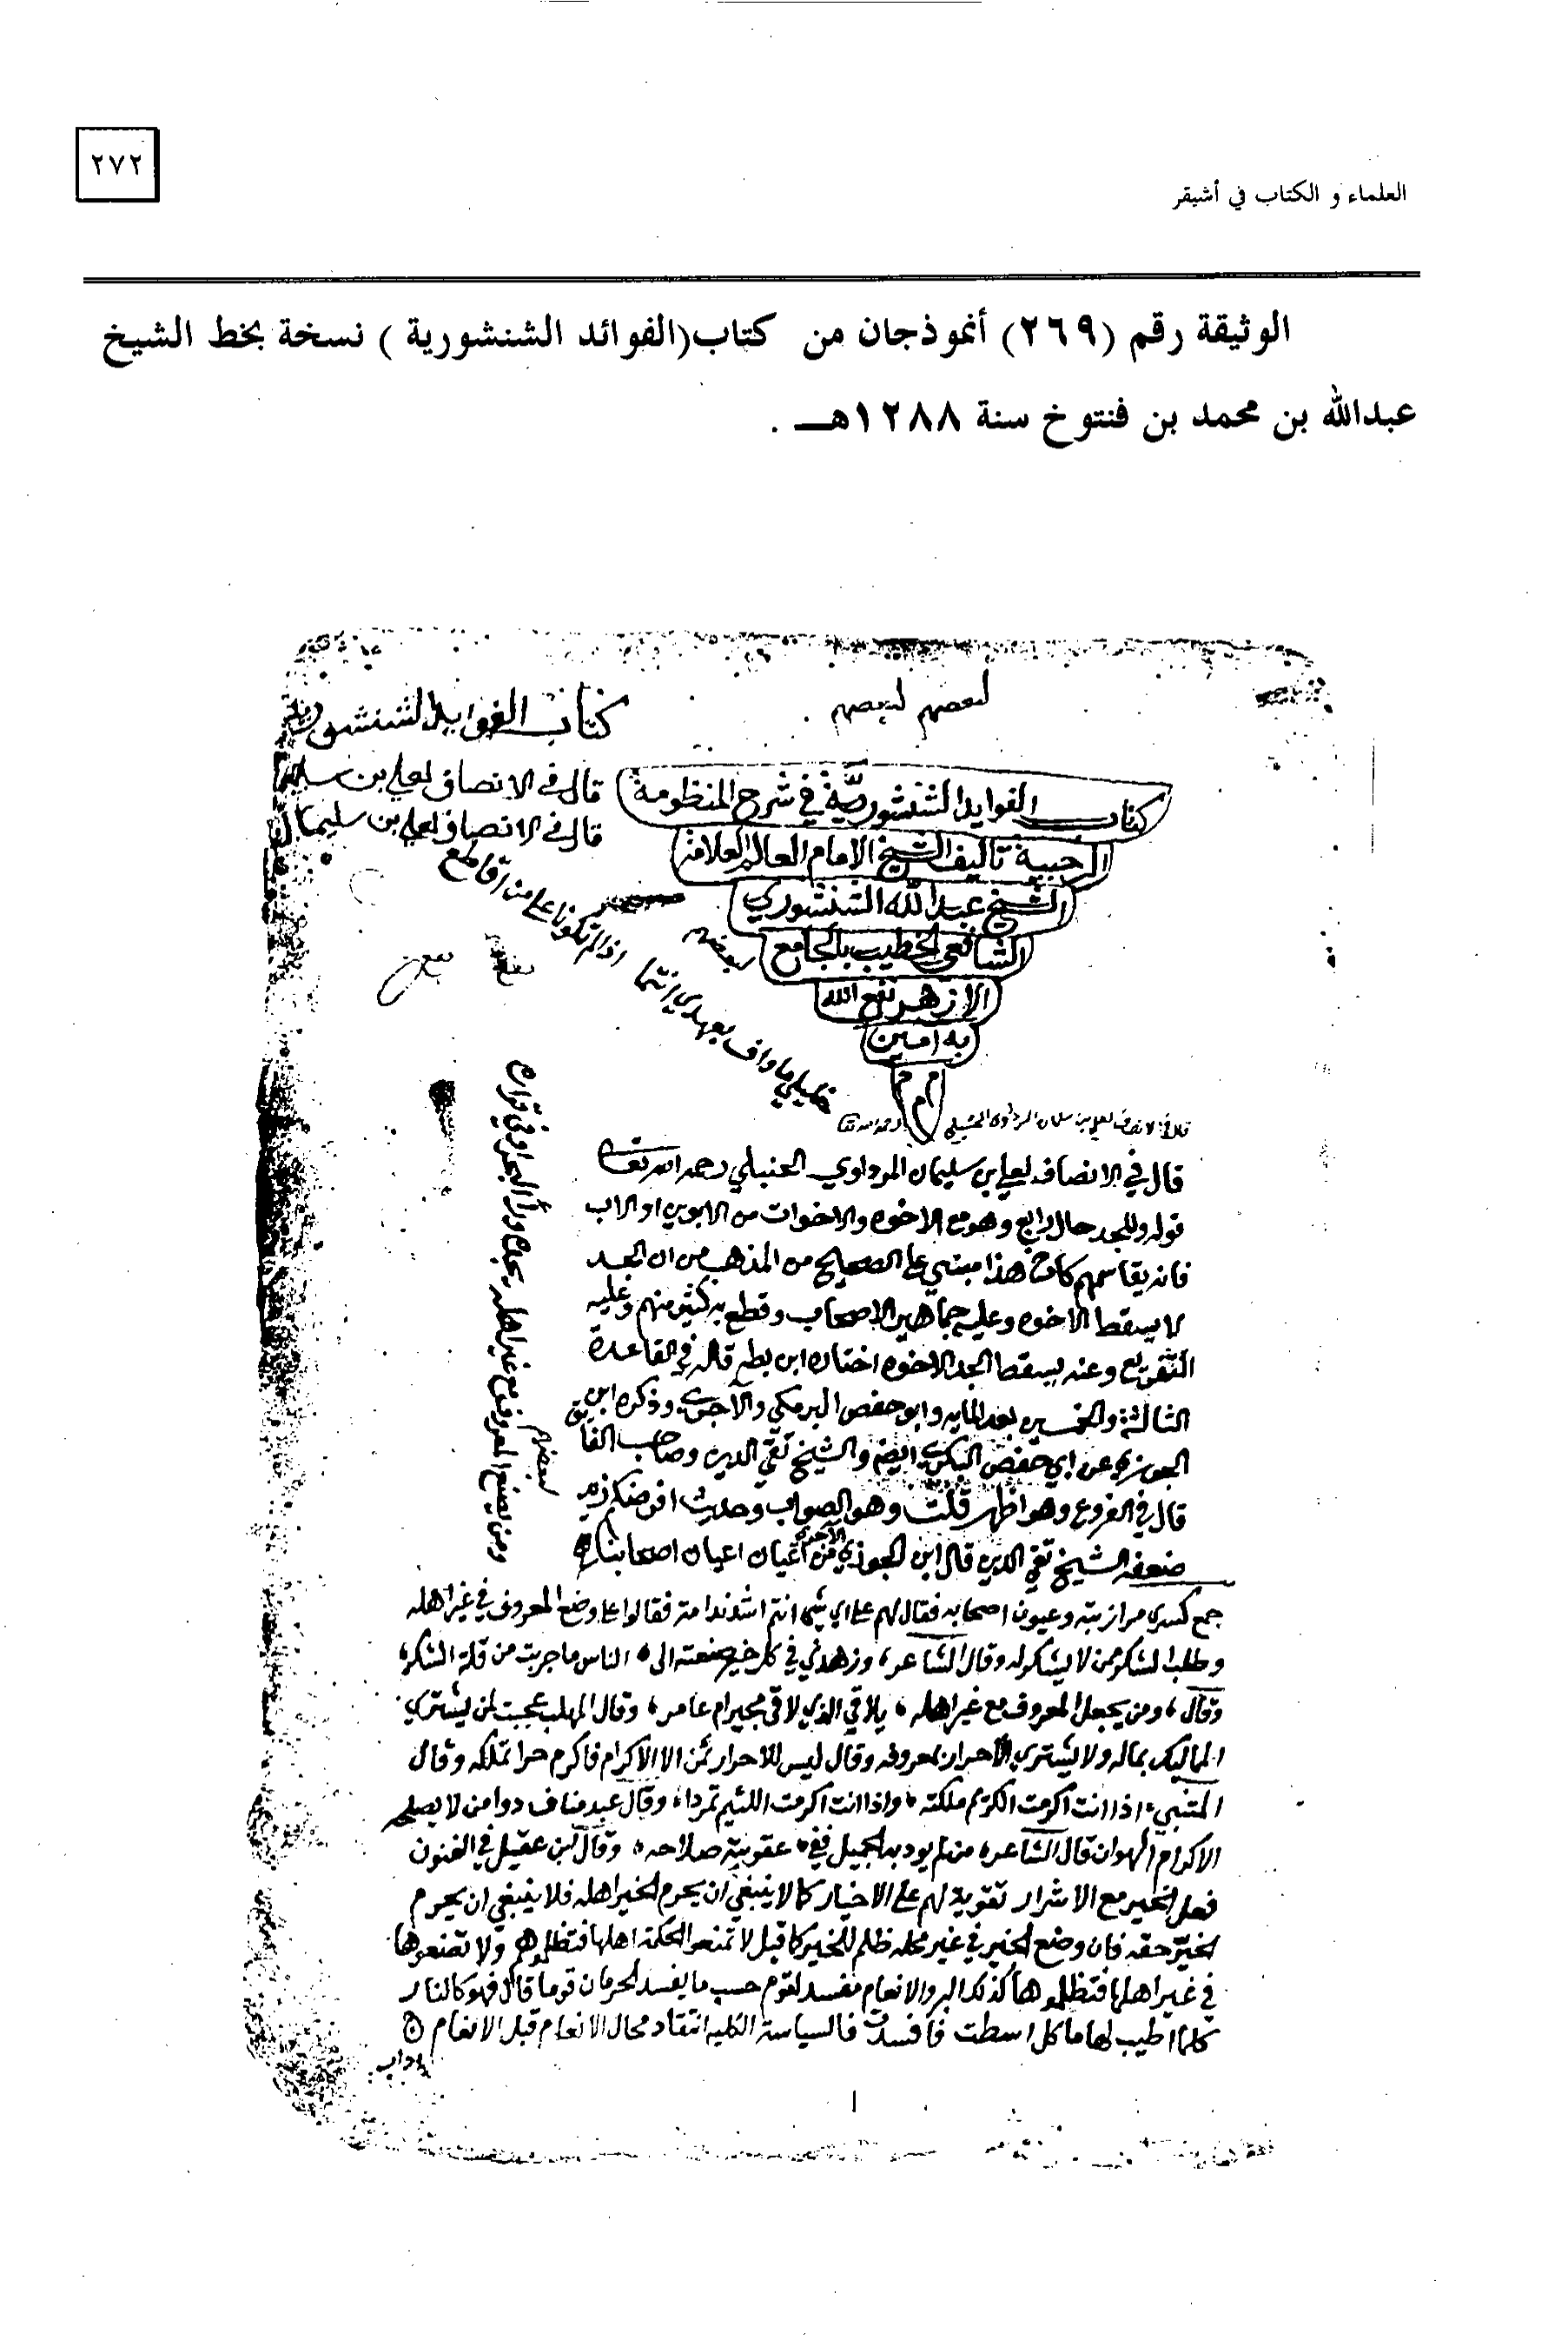 ٢٧٢
العلماء و الكتاب في أشيقر
الوثيقة رقم (٢٦٩) أنموذجان من كتاب(الفوائد الشنشورية ) نسخة بخط الشيخ
عبدالله بن محمد بن فنتوخ سنة ١٢٨٨هـ .
لبعضهم لبعضهم
كتاب الفوايد الشنشورية
قال في الانصاف لعلي بن سليمان
قال في الانصاف لعلي بن سليمان
كتاب الفوايد الشنشوريّة في شرح المنظومة
الرحبية تاليف الشيخ الامام العالم العلامة
الشيخ عبدالله الشنشوري
الشافعي الخطيب بالجامع
الازهر نفع الله
به امين
م م م
لبعضهم
خليلي ما واف بعهدي انتما اذا لم تكونا علي من اقاطع
لبعضهم
ومن يصنع المعروف مع غير اهله يجد
قال في الانصاف لعلي بن سليمان المرداوي الحنبلي رحمه الله تعالى
قوله وللجد حال رابع وهو مع الاخوه والاخوات من الابوين او الاب
فانه يقاسمهم كاخ هذا مبني على الصحيح من المذهب من ان الجد
لا يسقط الاخوه وعليه جماهير الاصحاب وقطع به كثير منهم وعليه
التفريع وعنه يسقط الجد الاخوه اختاره ابن بطه قاله في القاعدة
الثالثة والخمسين بعد المايه وابو حفص البرمكي والآجري وذكره ابن
الجوزي عن ابي حفص العكبري ايضا والشيخ تقي الدين وصاحب الفايق
قال في الفروع وهو اظهر قلت وهو الصواب وحديث افرضكم زيد
ضعفه الشيخ تقي الدين قال ابن الجوزي الآجري من اعيان اعيان اصحابنا
جمع كسرى مرازبته وعيون اصحابه فقال لهم على اي شي انتم اشد ندامة فقالوا على وضع المعروف في غير اهله
وطلب الشكر ممن لا يشكر له وقال الشاعر، وزهدني في كل خير صنعته الى، الناس ما جربت من قلة الشكر،
وقال، ومن يجعل المعروف مع غير اهله، يلاقي الذي لاقى مجير ام عامر، وقال المهلب عجبت لمن يشتري
المماليك بماله ولا يشتري الاحرار بمعروفه وقال ليس للاحرار ثمن الا الاكرام فاكرم حرا تملكه وقال
المتنبي، اذا انت اكرمت الكريم ملكته، واذا انت اكرمت اللئيم تمردا، وقال عبد مناف دوا من لا يصلحه
الاكرام الهوان قال الشاعر، من لم يودبه الجميل ففي، عقوبته صلاحه، وقال ابن عقيل في الفنون
فعل الخير مع الاشرار تقوية لهم على الاخيار كما لا ينبغي ان يحرم الخير اهله فلا ينبغي ان يحرم
الخير حقه فان وضع الخير في غير محله ظلم للخير كما قيل لا تمنعوا الحكمة اهلها فتظلموهم ولا تضعوها
في غير اهلها فتظلموها كذلك البر والانعام مفسد لقوم حسب ما يفسد الحرمان قوما قال فهو كالنار
كلما اطيب لها ماكل اسطت فافسدت فالسياسة الكليه انتقاد محال الانعام قبل الانعام